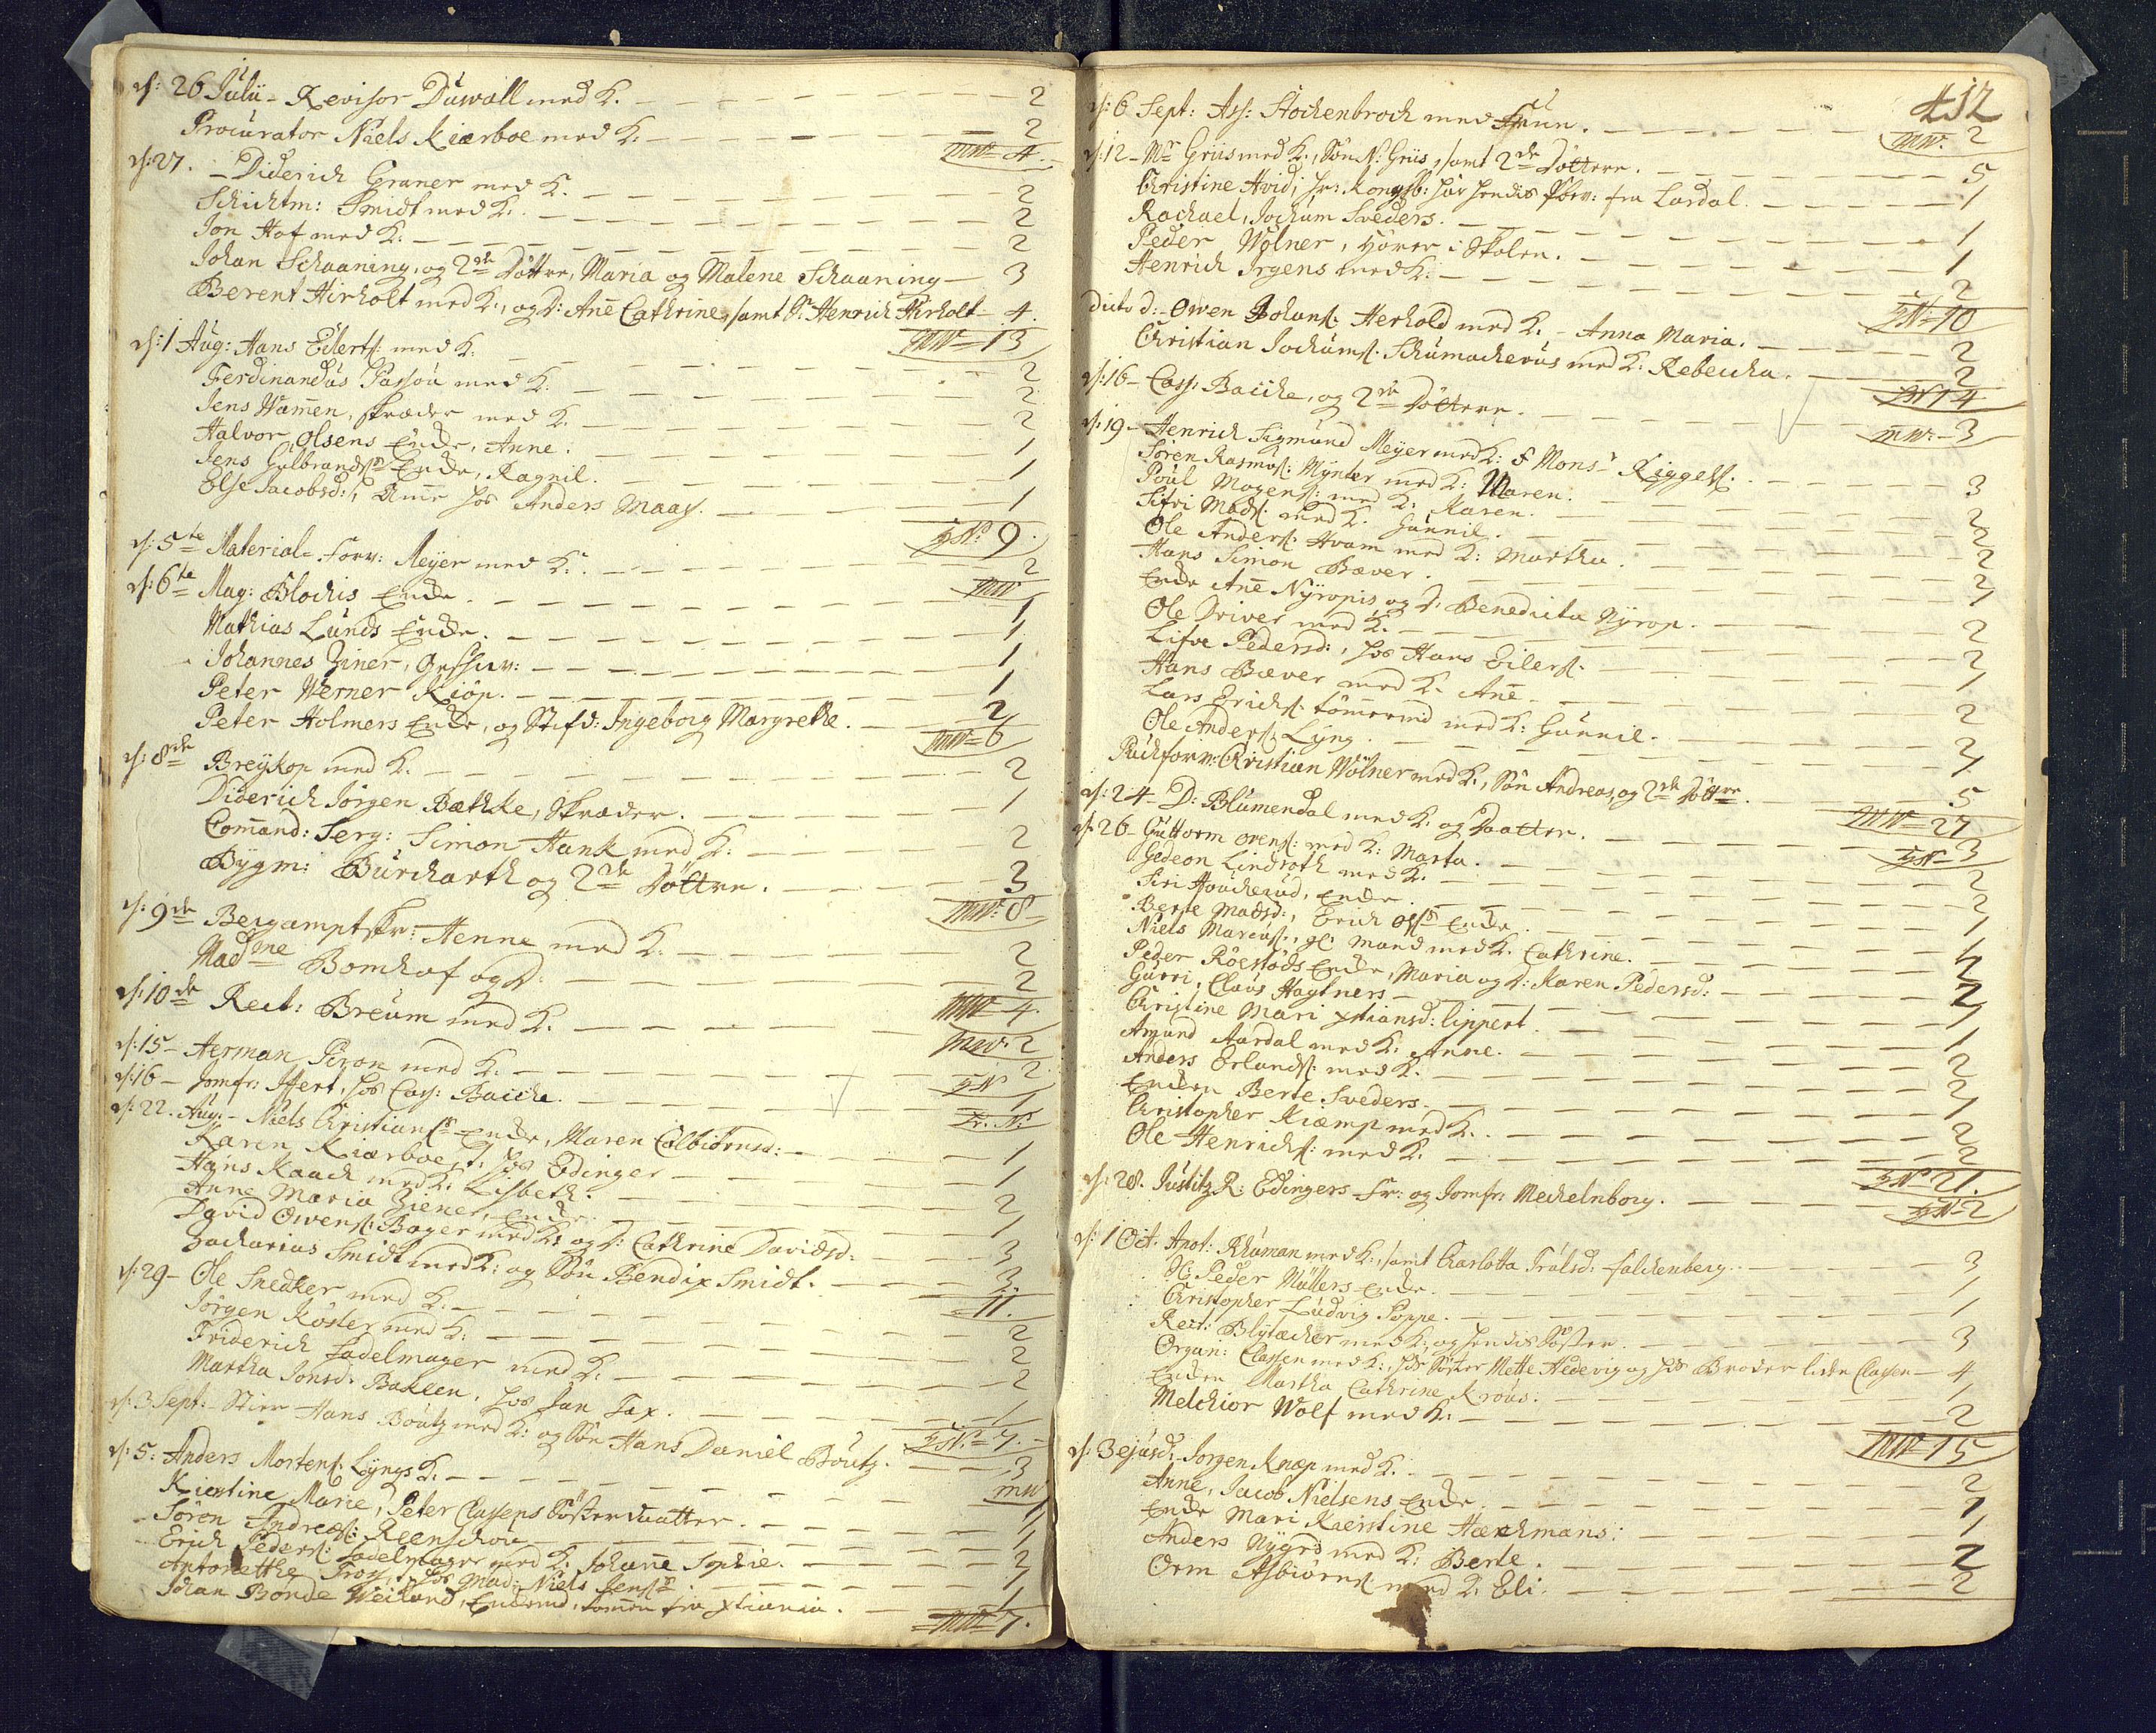 d: 26 Julii - Revisor Duwall med K. 2
Procurator Niels Kiærboe med K: 2
MW= 4.
d: 27. - Diderich Graner med K. 2
Schichtm: Smidt med K. 2
Jon Hof med K: 2
Johan Schaaning, og 2de Döttre, Maria og Malene Schaaning 3
Berent Hirholt med K:, og D: Añe Cathrine, samt S: Henrich Hirholt 4.
MW= 13
d: 1 Aug: Hans Eilerts: med K: 2
Ferdinandus Passou med K: 2
Jens Wam̃en, skræder med K. 2
Halvor Olsens Encke, Anne. 1
Jens Gulbrands: Encke, Ragnil. 1
Else Jacobsd:, Am̃e hos Anders Maas. 1
9.
d: 5te Material-Forv: Meyer med K: 2
MW
d: 6te Mag: Blochis Encke. 1
Mathias Lunds Encke. 1
Johannes Ziner, 1
Peter Werner Kiöp. 1
Peter Holmers Encke, og Stifd: Ingeborg Margrethe. 2
MW= 6
d: 8de Breykop med K. 2
Diderich Jörgen Bæthke, Skræder. 1
Com̃and: Serg: Simon Hank med K: 2
Bygm: Burcharth og 2de Döttre. 3
MW: 8
d: 9de Bergamptskr: Henne med K: 2
Madme Bomhof og D. 2
MW= 4.
d: 10de Rect: Breum med K. 2
MW: 2
d: 15 - Herman Piron med K. 2
d: 16 - Jomfr: Ifert, hos Cass: Bacche. 1
d: 22. Aug: - Niels Christians: Encke, Maren Colbiörnsd: 1
Karen Kiærboe, hos Edinger 1
Hans Kaach med K: Lisbeth. 2
Anne Maria Ziener, Encke. 1
David Owens: Bager med K: og D: Cathrine Davidsd: 3
Zacharias Smidt med K: og Sön Bendix Smidt. 3.
11.
d: 29 - Ole Snedker med K. 2
Jörgen Köster med K: 2
Friderich Sadelmager med K: 2
Martha Jonsd: Bakken, hos Jan Fax. 1
= 7.
d: 3 Sept: - Stier Hans Boutz med K: og Sön Hans Daniel Boutz. 3
MW
d: 5: Anders Mortens: Lyngs K. 1
Kierstine Marie, Peter Classens Söster Daatter. 1
Sören Andreæs: Reenschou 1
Erich Peders: Sadelmager med K: Johañe Sophie. 2
Antonetthe Troy, hos Mad: Niels Jens: 1
Johan Bonde Weiland, kom̃en fra xtiania. 1
MW= 7.
412
d: 6 Sept: Ass: Stockenbroch med Fruen. 2
MW.
d: 12 - Mr Griis med K:, Sön N: Griis, samt 2de Döttere. 5
Christine Hvid, fra Lardal. 1
Rachael, Jochum Sveders. 1
Peder Wölner, Hörer i Skolen. 1
Henrich Irgens med K: 2
10
dicto d: - Owen Johans: Herhold med K. - Anna Maria. 2
Christian Jochums: Schumacherus med K: Rebecka. 2
4
d: 16 - Cass: Bacche, og 2de Döttere. 3
MW: - 3
d: 19 - Henrich Sigmund Meyer med K: & Monsr Kiggels. 3
Sören Rasmus: Mynter med K: Maren. 2
Poul Mogens: med K: Karen. 2
Sifri Mads: med K: Gunnil. 2
Ole Anders: Hvam med K: Martha. 2
Hans Simon Bæver. 1
Encke Añe Nyropis, og D: Benedicta Nyrop. 2
Ole Driver med K. 2
Lifve Pedersd:, hos Hans Eilers: 1
Hans Bæver med K. Añe. 2
Lars Erichs: töm̃ermd med K: Gunnil. 2
Ole Anders: Lyng. 1
Pachforv: Christian Wölner med K:, Sön Andreas, og 2de Döttre. 5
MW= 27
d: 24 - D: Blumendal med K: og Daatter. 3
d: 26 - Guttorm Ovens: med K: Marta. 2
Gedeon Lindroth med K. 2
Siri Houcherud, Encke. 1
Berte Madsd:, Erich Encke. 1
Niels Marcus:, mand med K: Cathrine. 2
Peder Röestöds Encke, Maria og D: Karen Pedersd: 2
Gurri, Claus Hagtners 1
Christine Mari xstiansd: Lippert. 1
Amund Aardal med K: Anne. 2
Anders Erlands: med K. 2
Encken Berte Sveders. 1
Christopher Kiæmp med K. 2
Ole Henrichs: med K. 2
21.
d: 28. Justitz R: Edingers Fr: og Jomfr: Mechelnborg. 2
d: 1 Oct. Apot: Rhuman med K:, samt Charlotta Trulsd: Falckenberg. 3
H: Peder Müllers Encke. 1
Christopher Ludvig Poppe. 1
Rect: Blytæcher med K: og hendes Söster. 3
Organ: Classen med K:, hds Söster Mette Hedevig og hds Broder liden Classen 4
Encken Martha Cathrine Krous: 1
Melchior Wolf med K: 2
MW= 15
d: 3 ejusd: Jörgen Knap med K. 2
Anne, Jacob Nielsens Encke. 1
Encke Mari Kaerstine Hærchmans: 1
Anders Nygrd med K: Berte. 2
Orm Asbiörns: med K: Eli. 2